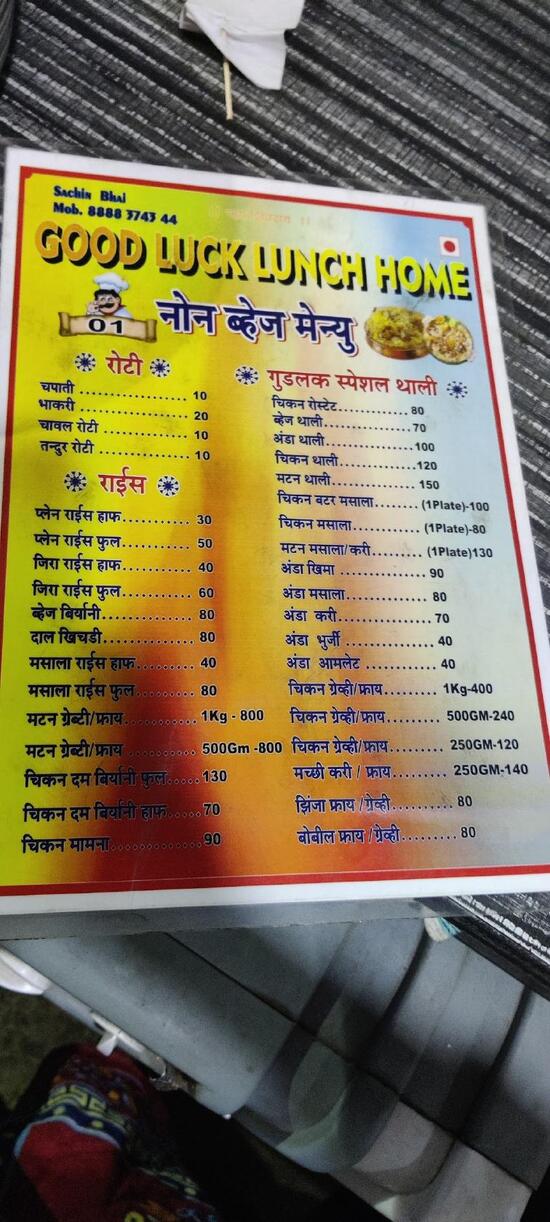 Sachin Bhai
Mob. 8888 3743 44
GOOD LUCK LUNCH HOME
01
नोन व्हेज मेन्यु
रोटी
चपाती .................. 10
भाकरी .................. 20
चावल रोटी .............. 10
तन्दुर रोटी .............. 10
राईस
प्लेन राईस हाफ........... 30
प्लेन राईस फुल........... 50
जिरा राईस हाफ........... 40
जिरा राईस फुल........... 60
व्हेज बिर्यानी.............. 80
दाल खिचडी.............. 80
मसाला राईस हाफ......... 40
मसाला राईस फुल......... 80
मटन ग्रेव्टी/फ्राय........... 1Kg - 800
मटन ग्रेव्टी/फ्राय ........... 500Gm -800
चिकन दम बिर्यानी फुल......130
चिकन दम बिर्यानी हाफ......70
चिकन मामना..............90
गुडलक स्पेशल थाली
चिकन रोस्टेट............ 80
व्हेज थाली.............. 70
अंडा थाली..............100
चिकन थाली.............120
मटन थाली..............150
चिकन बटर मसाला.......(1Plate)-100
चिकन मसाला............ (1Plate)-80
मटन मसाला/करी......... (1Plate)130
अंडा खिमा .............. 90
अंडा मसाला.............. 80
अंडा करी............... 70
अंडा भुर्जी .............. 40
अंडा आमलेट ............ 40
चिकन ग्रेव्ही/फ्राय......... 1Kg-400
चिकन ग्रेव्ही/फ्राय......... 500GM-240
चिकन ग्रेव्ही/फ्राय......... 250GM-120
मच्छी करी / फ्राय......... 250GM-140
झिंजा फ्राय / ग्रेव्ही.......... 80
बोबील फ्राय / ग्रेव्ही......... 80